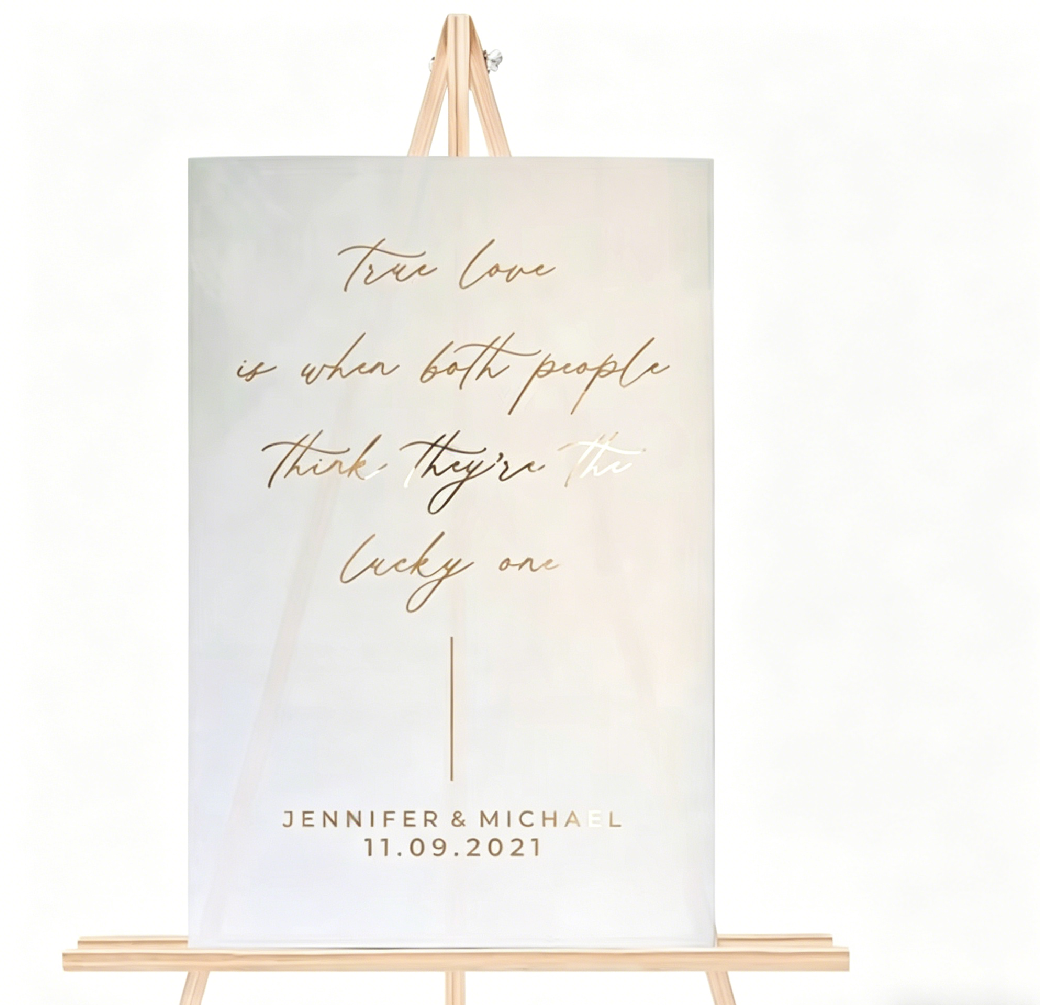 True love
is when both people
think they're the
lucky one
JENNIFER & MICHAEL
11.09.2021